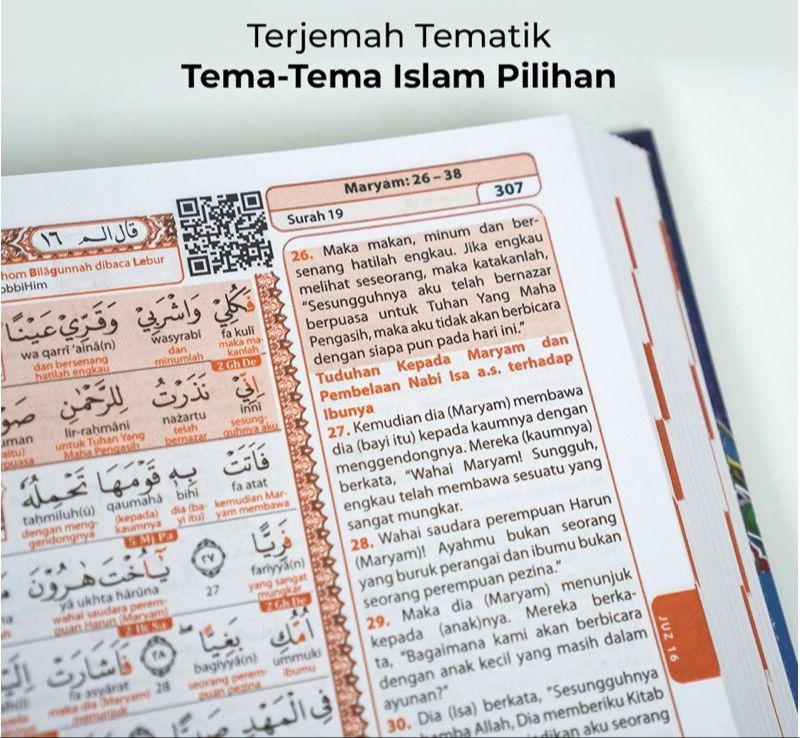 Terjemah Tematik
Tema-Tema Islam Pilihan
Maryam: 26 – 38
Surah 19
307
قال الم ١٦
hom Bilāgunnah dibaca Lebur
obbiHim
فَكُلِيْ وَاشْرَبِيْ وَقَرِّيْ عَيْنًا
fa kulī wasyrabī wa qarrī 'ainā(n)
maka ma-
kanlah
dan
minumlah
dan bersenang
hatilah engkau
2 Gh De
اِنِّيْ نَذَرْتُ لِلرَّحْمٰنِ
innī nażartu lir-raḥmāni
sesung-
guhnya aku
telah
bernazar
untuk Tuhan Yang
Maha Pengasih
puasa
فَاَتَتْ بِهٖ قَوْمَهَا تَحْمِلُهٗ
fa atat bihī qaumahā taḥmiluh(ū)
kemudian Mar-
yam membawa
dia (ba-
yi itu)
(kepada)
kaumnya
dengan meng-
gendongnya
5 Mj Pa
فَرِيًّا ٢٧ يٰٓاُخْتَ هٰرُوْنَ
fariyyā(n) 27 yā ukhta hārūna
yang sangat
mungkar
wahai saudara perem-
puan Harun (Maryam)
2 Gh De
اُمُّكِ بَغِيًّا ٢٨ فَاَشَارَتْ
ummuki bagiyyā(n) 28 fa asyārat
ibumu
seorang perem-
puan pezina
maka dia (Maryam)
menunjuk
فِى الْمَهْدِ
26. Maka makan, minum dan ber-
senang hatilah engkau. Jika engkau
melihat seseorang, maka katakanlah,
“Sesungguhnya aku telah bernazar
berpuasa untuk Tuhan Yang Maha
Pengasih, maka aku tidak akan berbicara
dengan siapa pun pada hari ini.”
Tuduhan Kepada Maryam dan
Pembelaan Nabi Isa a.s. terhadap
Ibunya
27. Kemudian dia (Maryam) membawa
dia (bayi itu) kepada kaumnya dengan
menggendongnya. Mereka (kaumnya)
berkata, “Wahai Maryam! Sungguh,
engkau telah membawa sesuatu yang
sangat mungkar.
28. Wahai saudara perempuan Harun
(Maryam)! Ayahmu bukan seorang
yang buruk perangai dan ibumu bukan
seorang perempuan pezina.”
29. Maka dia (Maryam) menunjuk
kepada (anak)nya. Mereka berka-
ta, “Bagaimana kami akan berbicara
dengan anak kecil yang masih dalam
ayunan?”
30. Dia (Isa) berkata, “Sesungguhnya
hamba Allah, Dia memberiku Kitab
dikan aku seorang
JUZ 16